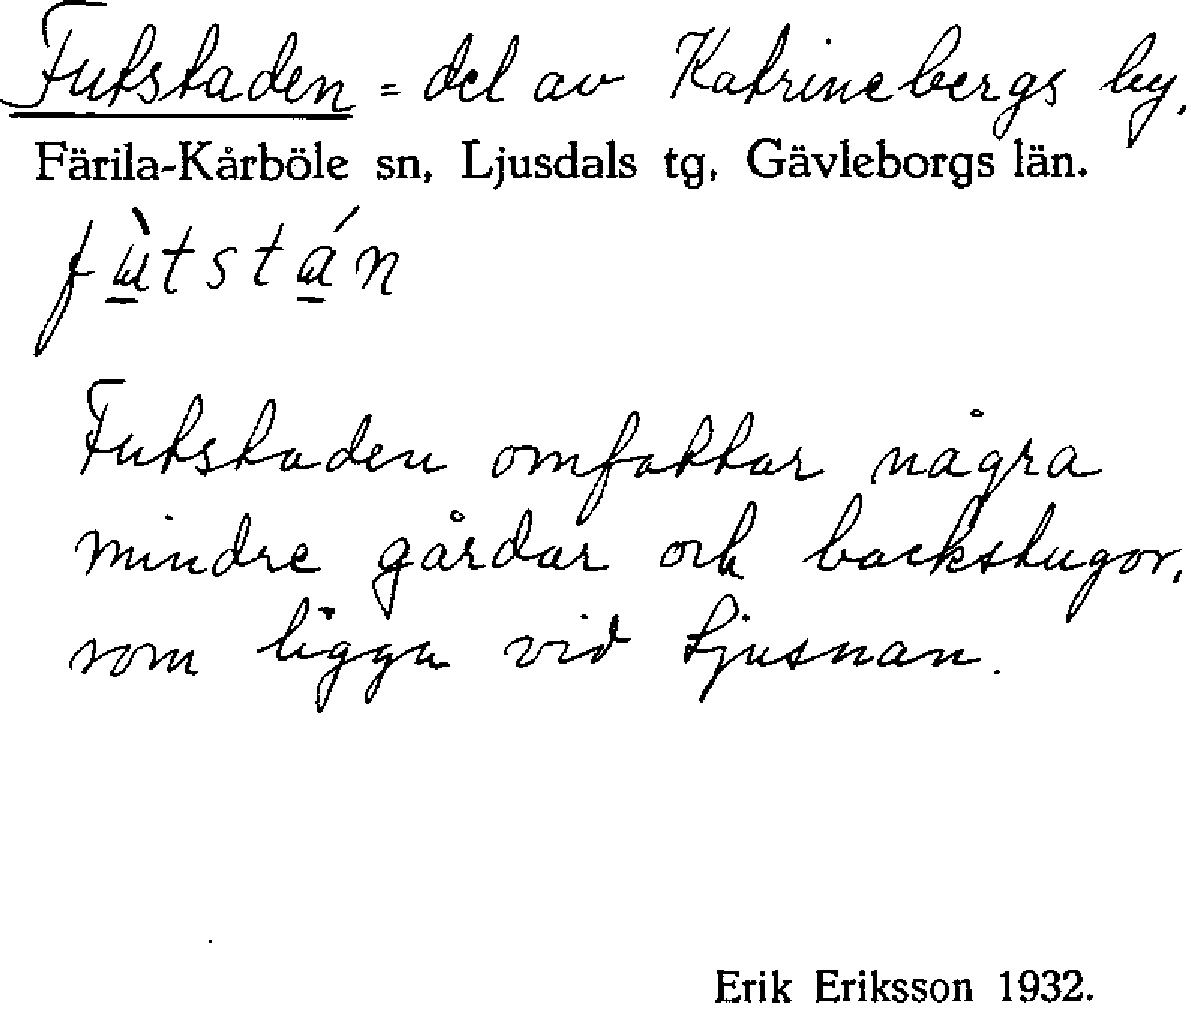 Futstaden = del av Katrinebergs by,
Färila-Kårböle sn, Ljusdals tg, Gävleborgs län.
fu̠̇̀tstá̠n
Futstaden omfattar några
mindre gårdar och backstugor,
som ligga vid Ljusnan.
Erik Eriksson 1932.